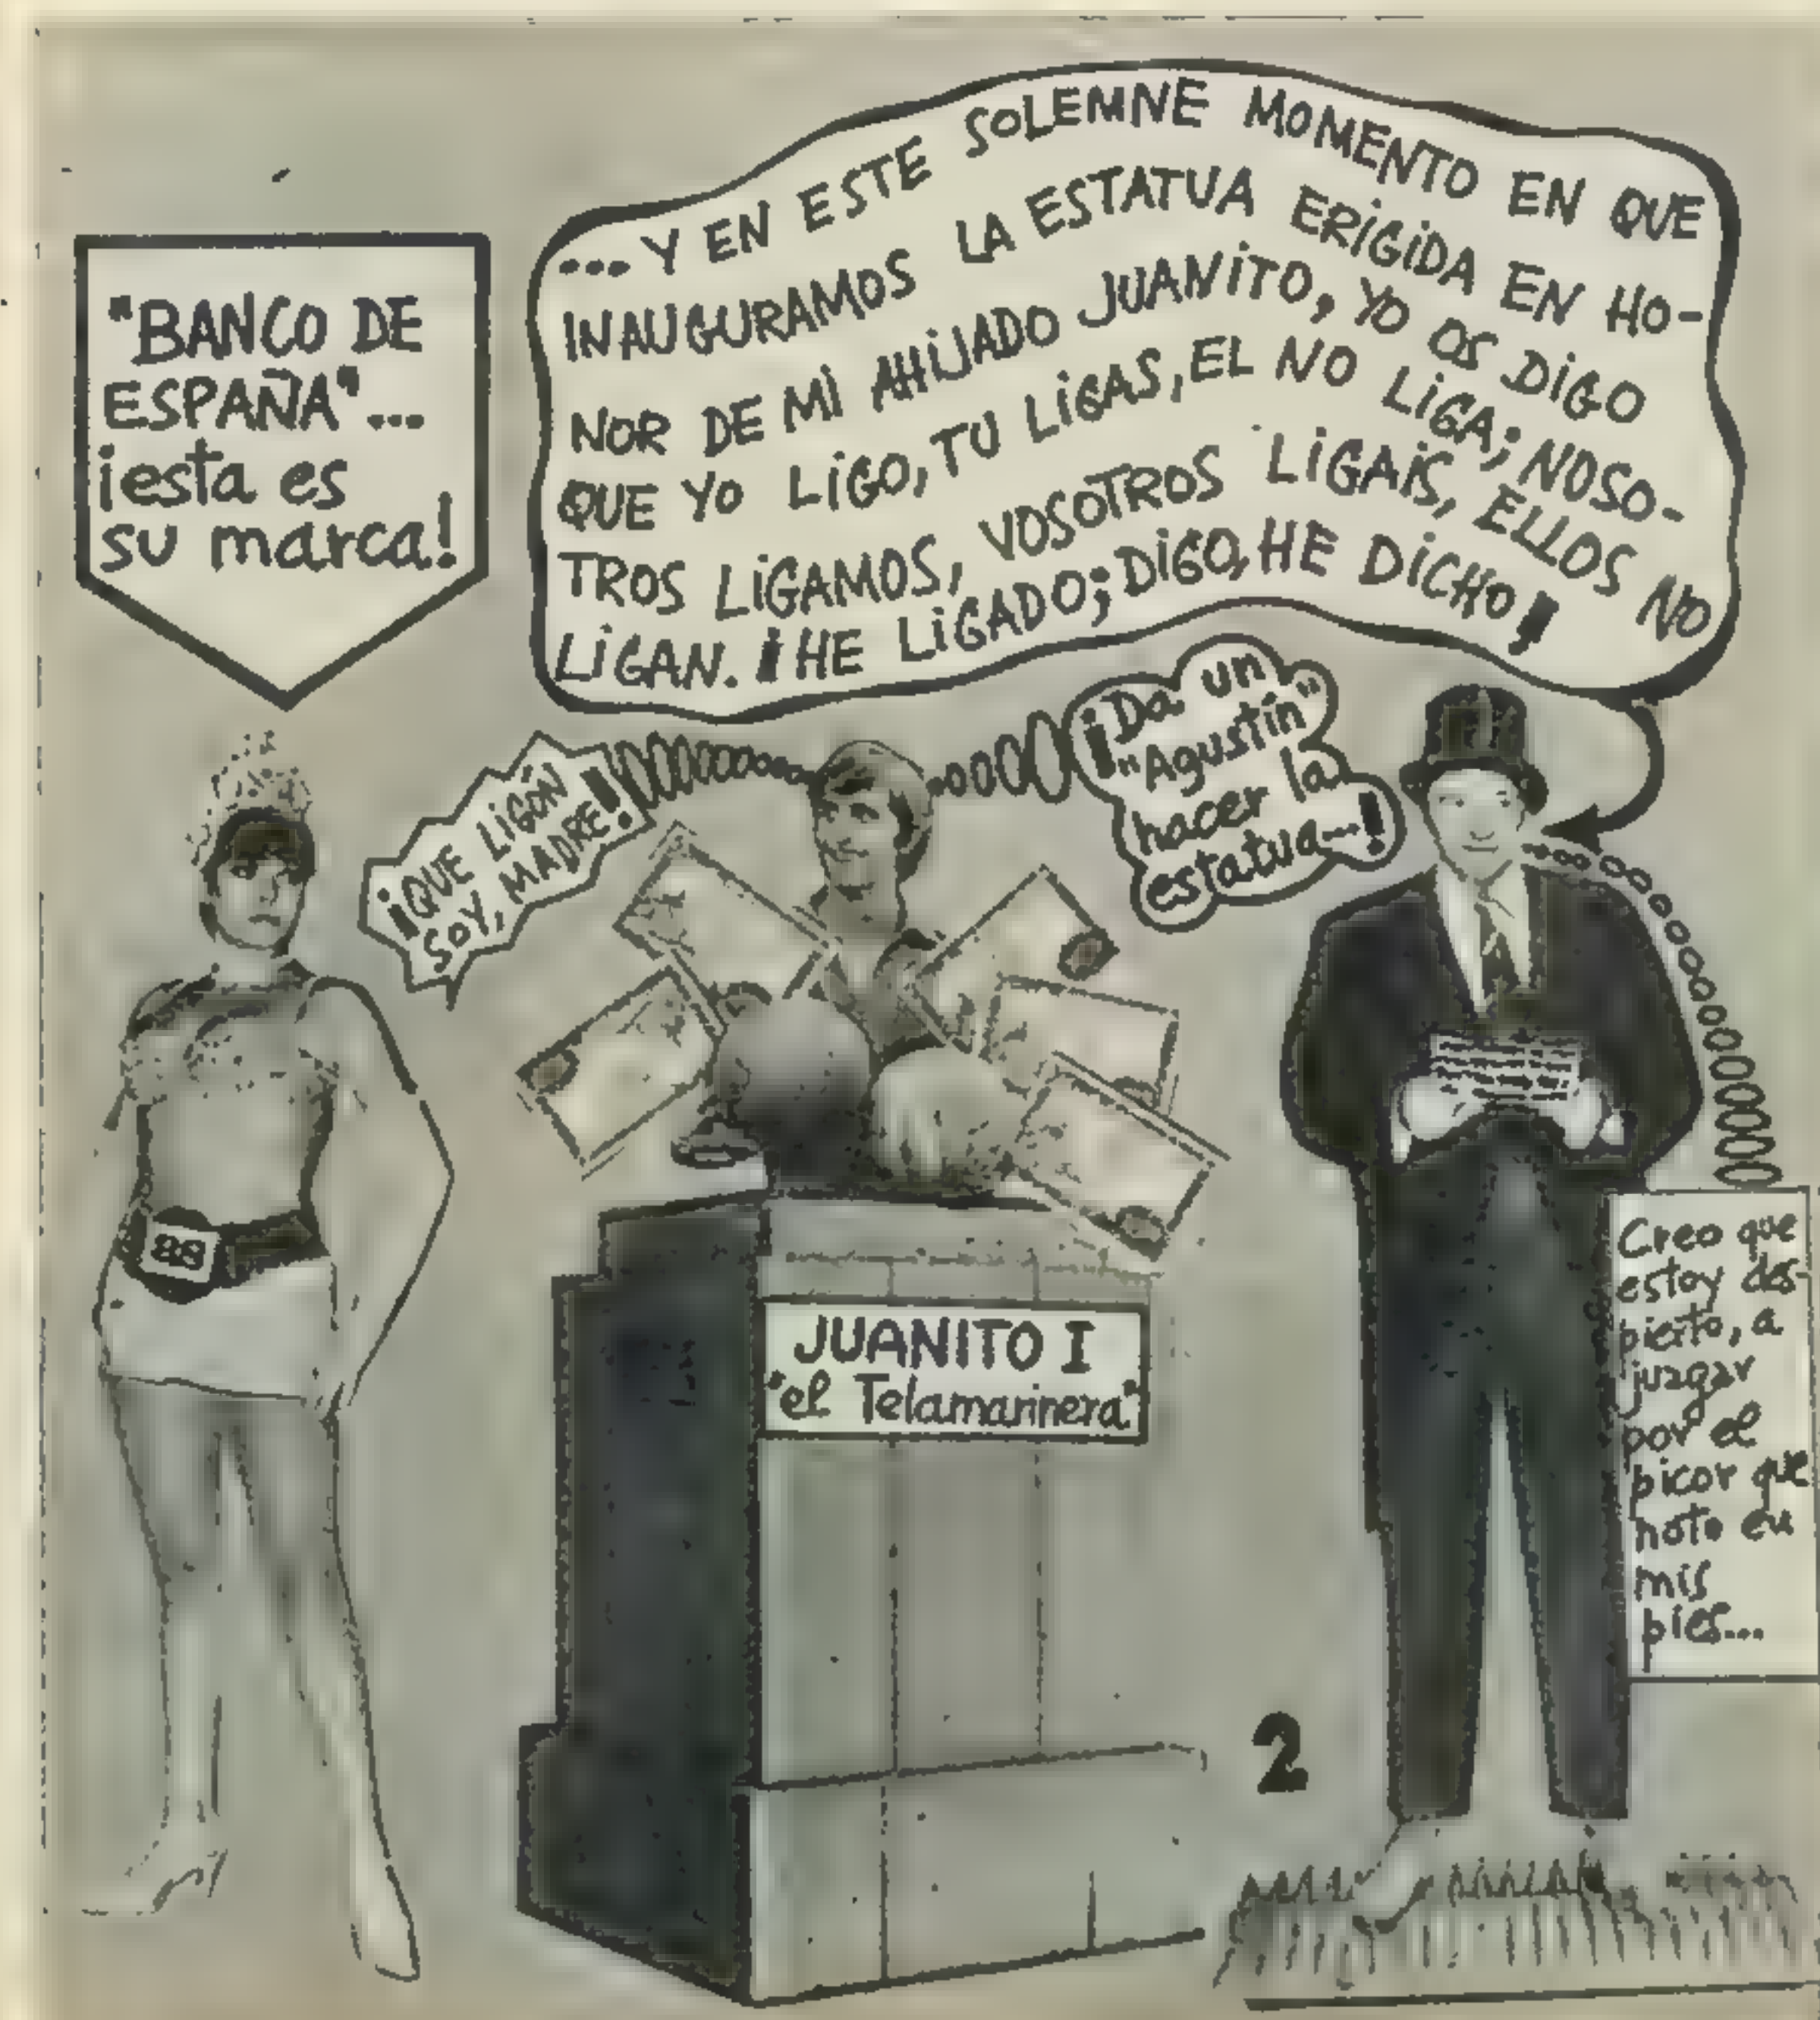 "BANCO DE
ESPAÑA"...
¡esta es
su marca!
... Y EN ESTE SOLEMNE MOMENTO EN QUE
INAUGURAMOS LA ESTATUA ERIGIDA EN HO-
NOR DE MI AHIJADO JUANITO, YO OS DIGO
QUE YO LIGO, TU LIGAS, EL NO LIGA; NOSO-
TROS LIGAMOS, VOSOTROS LIGAIS, ELLOS NO
LIGAN. ¡HE LIGADO; DIGO, HE DICHO!
¡QUE LIGÓN
SOY, MADRE!
¡Da un
"Agustín"
hacer la
estatua...!
88
JUANITO I
"el Telamarinera"
Creo que
estoy des-
pierto, a
juzgar
por el
picor que
noto en
mis
pies...
2